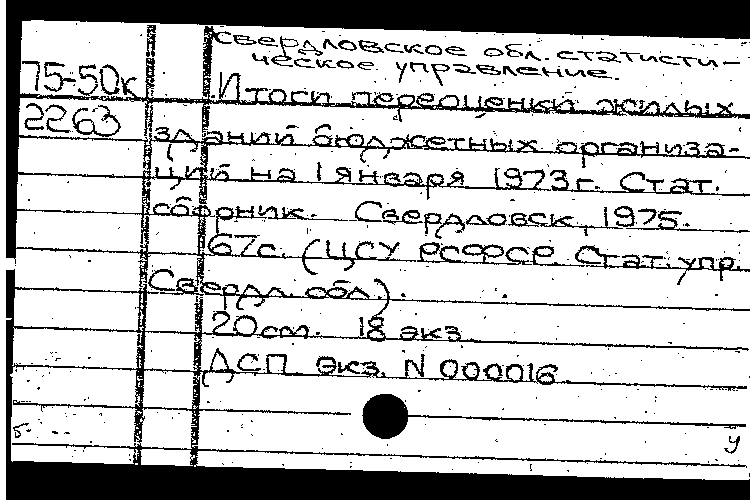 Свердловское обл. статисти-
ческое управление.
75-50к Итоги переоценки жилых
2263 зданий бюджетных организа-
ций на 1 января 1973 г. Стат.
сборник. Свердловск, 1975.
67с. (ЦСУ РСФСР. Стат. упр.
Свердл. обл.).
20см. 18 экз.
ДСП Экз. N 000016.
у